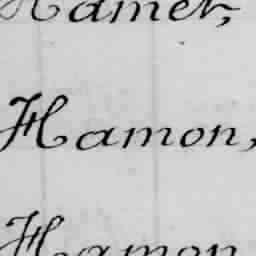 Hamer,
Hamon,
Hamon